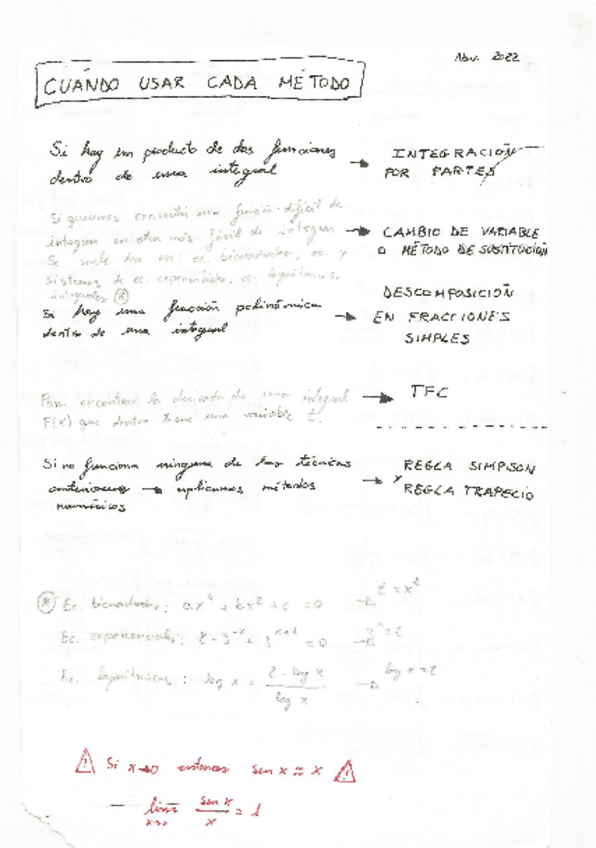 Nov. 2022
CUÁNDO USAR CADA MÉTODO
Si hay un producto de dos funciones dentro de una integral → INTEGRACIÓN POR PARTES
Si queremos convertir una función difícil de
integrar en otra más fácil de integrar → CAMBIO DE VARIABLE
Se suele dar en: ec. bicuadradas, ec. y O MÉTODO DE SUSTITUCIÓN
sistemas de ec. exponenciales, ec. logarítmicas,
integrales *
Si hay una fracción polinómica
dentro de una integral → DESCOMPOSICIÓN EN FRACCIONES SIMPLES
Para encontrar la derivada de una integral → TFC
F(x) que dentro tiene una variable t.
Si no funciona ninguna de las técnicas
anteriores → aplicamos métodos numéricos → REGLA SIMPSON y REGLA TRAPECIO
* Ec. bicuadradas: ax⁴ + bx² + c = 0 → t = x²
Ec. exponenciales:
Ec. logarítmicas: log x = 2 · log x / log x → log x = t
⚠ Si x→0 entonces sen x ≈ x ⚠
lim x→0 sen x / x = 1